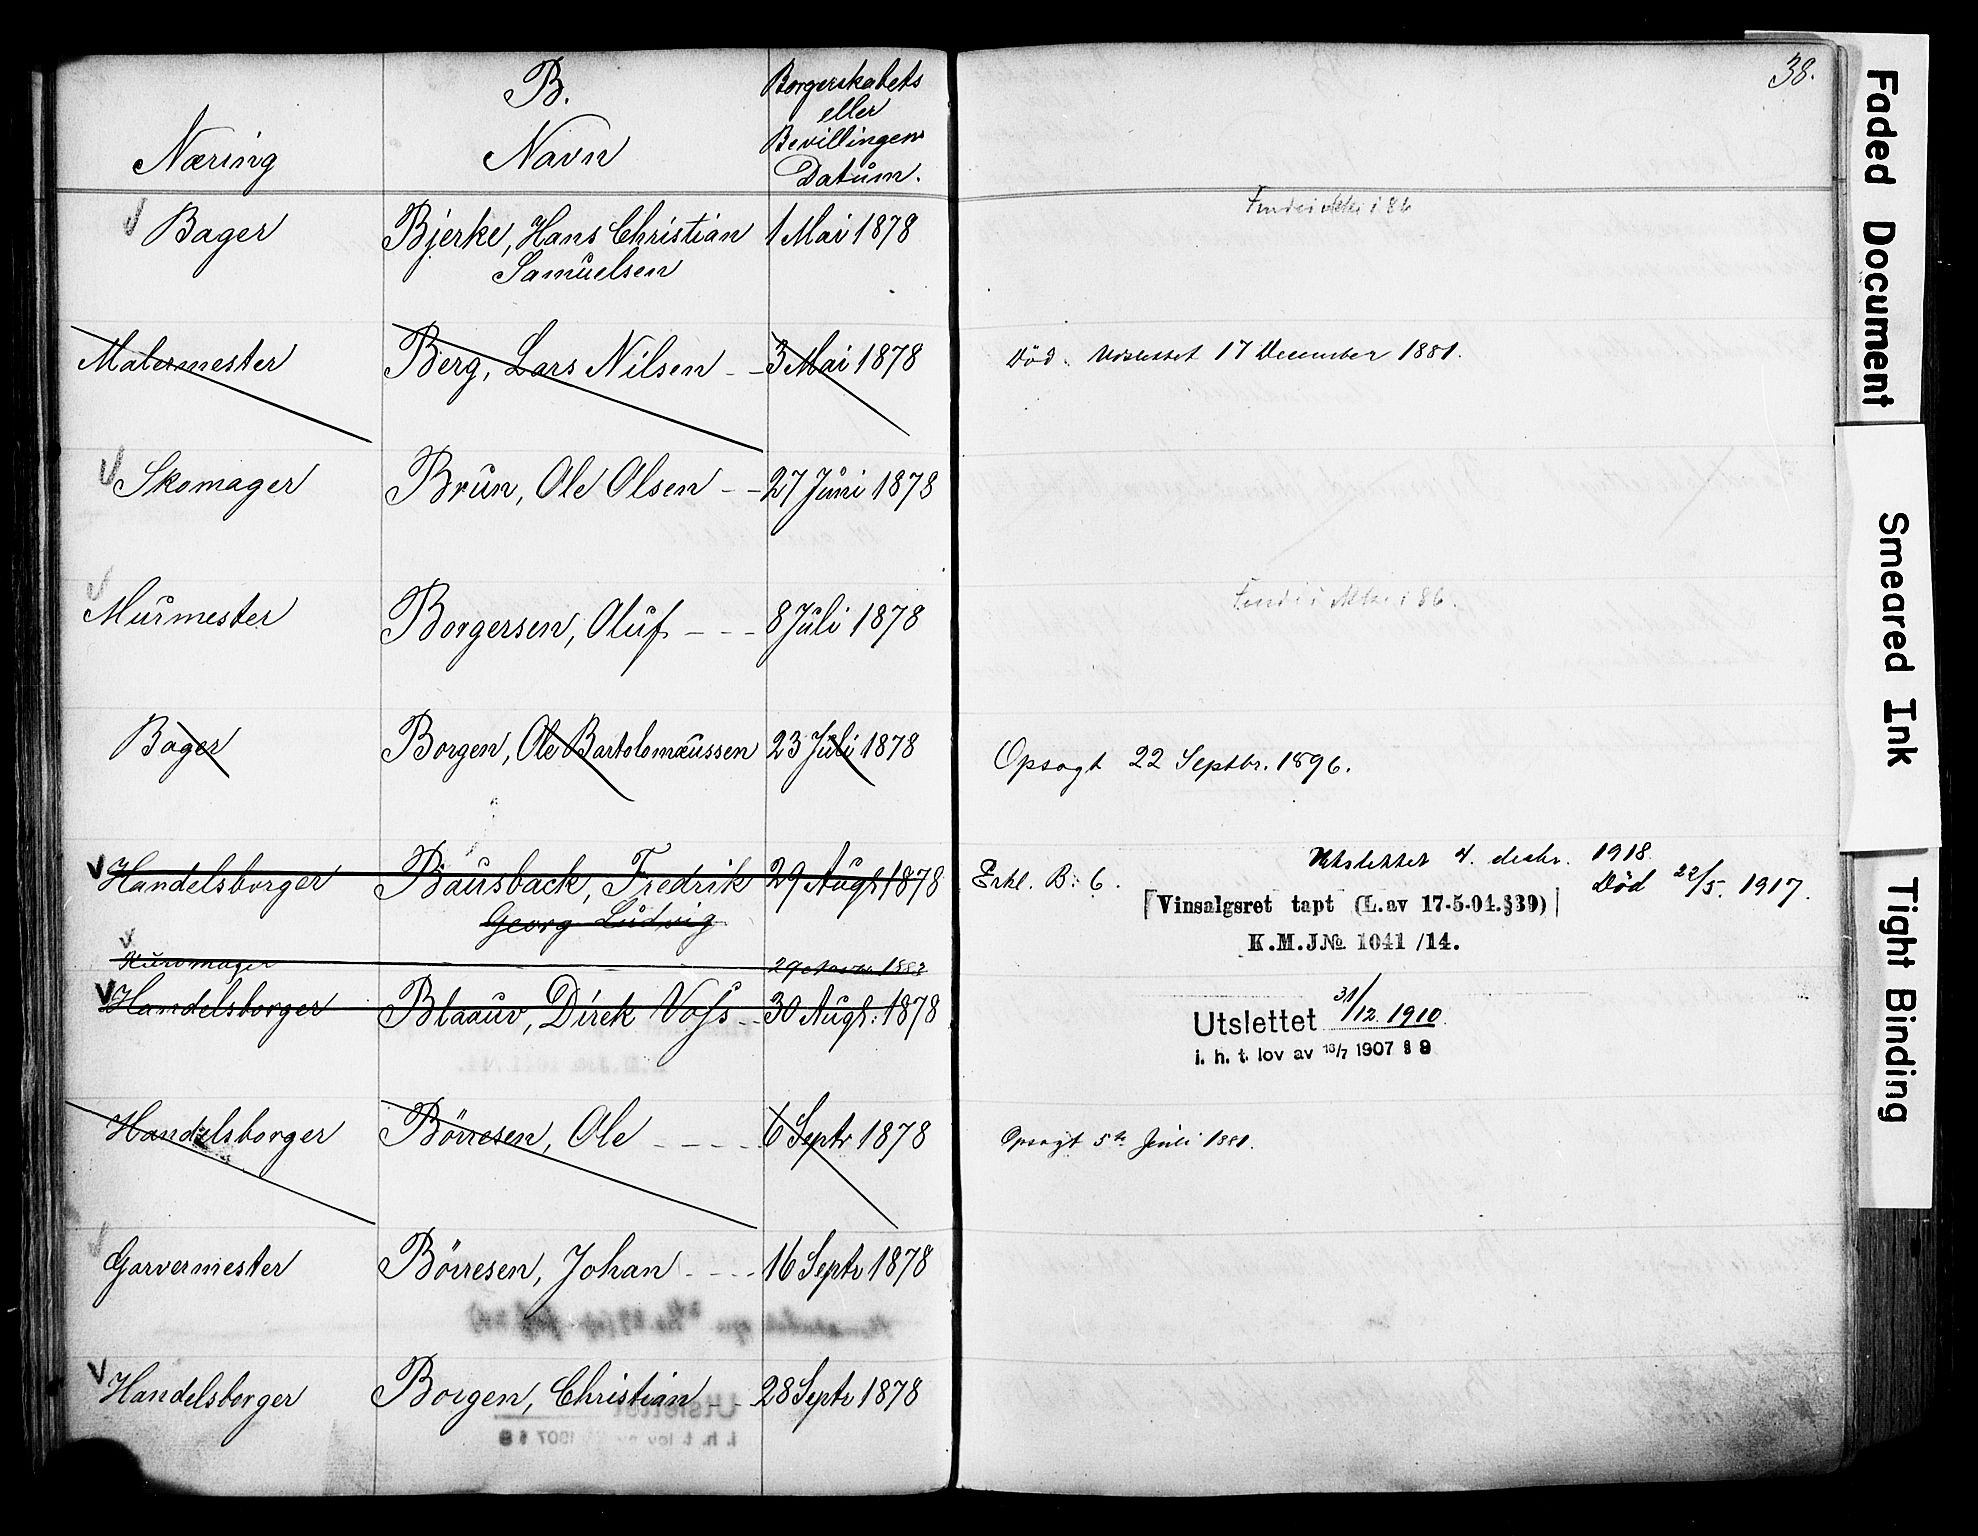 38.
B.
Næring
Navn
Borgerskabets
eller
Bevillingens
Datum.
Bager Bjerke, Hans Christian 1 Mai 1878
Samuelsen
Malermester Berg, Lars Nilsen - - 3 Mai 1878 Död. Udslettet 17 December 1881.
Skomager Brun, Ole Olsen - - 27 Juni 1878
Murmester Borgersen, Oluf - - - 8 Juli 1878
Bager Borgen, Ole Bartolomæussen 23 Juli 1878 Opsagt 22 Septbr. 1896.
Utslettet 4. desbr. 1918.
Handelsborger Bausback, Fredrik 29 Augt 1878 Erkl. B: 6. Död 22/5. 1917.
Georg Ludvig
Vinsalgsret tapt (L. av 17-5-04. § 39)
K. M. J№ 1041 /14.
Uromager 1883
Handelsborger Blaauw, Dirck Voss - - 30 Augt: 1878
Utslettet 31/12 1910
i. h. t. lov av 16/7 1907 § 9
Handelsborger Börresen, Ole - - - - 6 Septr 1878 Opsagt 5te Juli 1881.
Garvermester Börresen, Johan - - - - 16 Septr 1878
Handelsborger Borgen, Christian - - 28 Septr 1878
Faded Document
Smeared Ink
Tight Binding